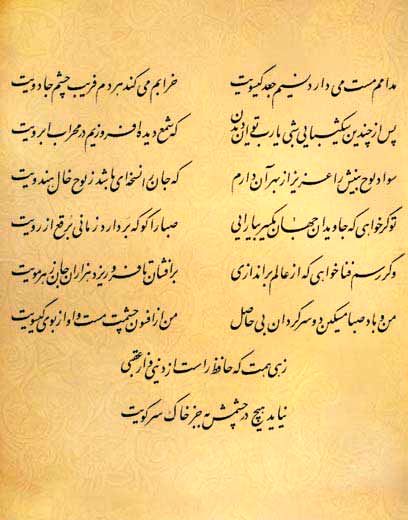 مدامم مست می دارد نسیم جعد گیسویت خرابم می کند هر دم فریب چشم جادویت
پس از چندین شکیبایی شبی یارب توان دیدن که شمع دیده افروزیم در محراب ابرویت
سواد لوح بینش را عزیز از بهر آن دارم که جان را نسخه‌ای باشد ز لوح خال هندویت
تو گر خواهی که جاویدان جهان یکسر بیارایی صبا را گو که بردارد زمانی برقع از رویت
وگر رسم فنا خواهی که از عالم براندازی برافشان تا فرو ریزد هزاران جان ز هر مویت
من و باد صبا مسکین دو سرگردان بی حاصل من از افسون چشمت مست و او از بوی گیسویت
زهی همت که حافظ راست از دنیی و از عقبی
نیاید هیچ در چشمش به جز خاک سر کویت